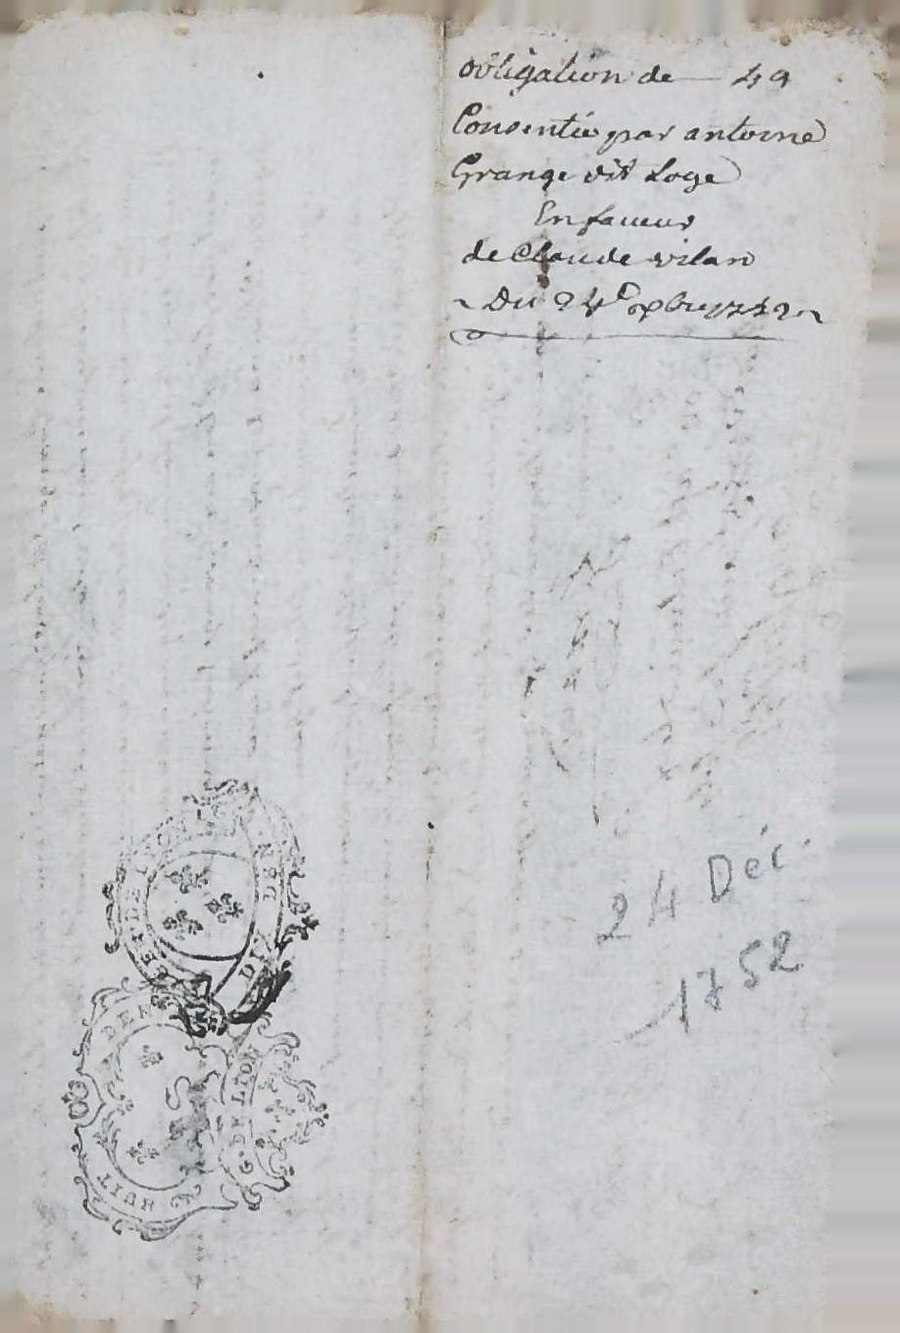 obligation de — 49
Consentie par antoine
Grange dit Loge
En faveur
de Claude vilard
Du 24e xbre 1752
24 Déc.
1752
GEN. DE LYON
DIX DEN
HUIT DEN
G. DE LION